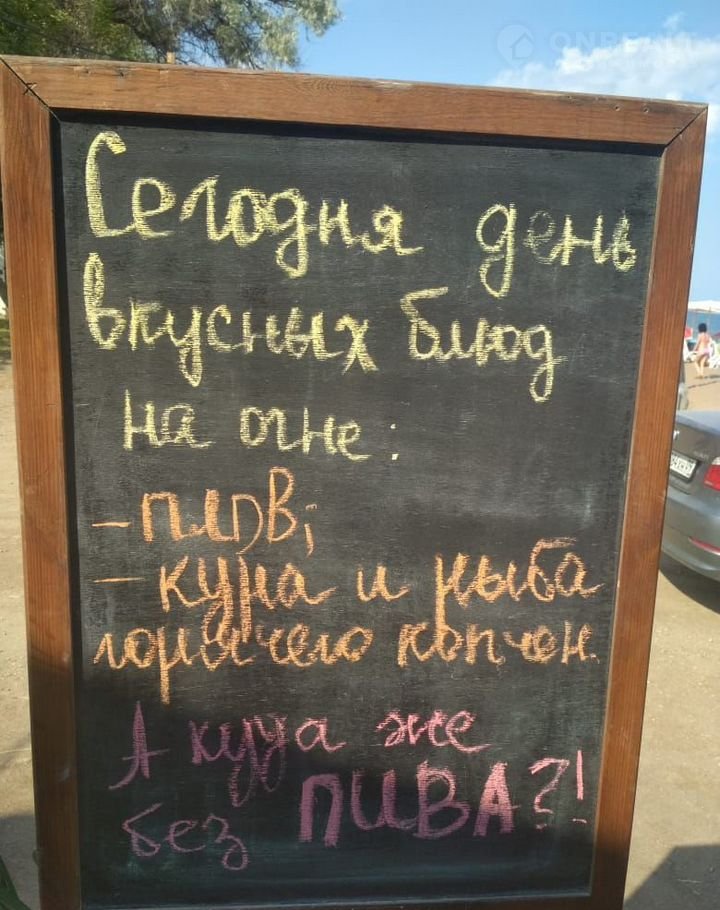 Сегодня день
вкусных блюд
на огне:
- плов;
- кура и рыба
горячего копчен.
А куда же
без ПИВА?!